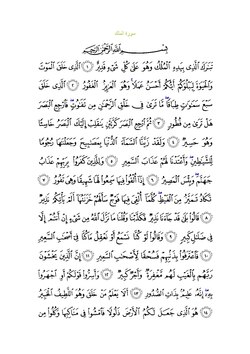 سورة الملك
بِسْمِ ٱللَّهِ ٱلرَّحْمَٰنِ ٱلرَّحِيمِ
تَبَٰرَكَ ٱلَّذِى بِيَدِهِ ٱلْمُلْكُ وَهُوَ عَلَىٰ كُلِّ شَىْءٍ قَدِيرٌ ۝١ ٱلَّذِى خَلَقَ ٱلْمَوْتَ
وَٱلْحَيَوٰةَ لِيَبْلُوَكُمْ أَيُّكُمْ أَحْسَنُ عَمَلًا وَهُوَ ٱلْعَزِيزُ ٱلْغَفُورُ ۝٢ ٱلَّذِى خَلَقَ
سَبْعَ سَمَٰوَٰتٍ طِبَاقًا مَّا تَرَىٰ فِى خَلْقِ ٱلرَّحْمَٰنِ مِن تَفَٰوُتٍ فَٱرْجِعِ ٱلْبَصَرَ
هَلْ تَرَىٰ مِن فُطُورٍ ۝٣ ثُمَّ ٱرْجِعِ ٱلْبَصَرَ كَرَّتَيْنِ يَنقَلِبْ إِلَيْكَ ٱلْبَصَرُ خَاسِئًا
وَهُوَ حَسِيرٌ ۝٤ وَلَقَدْ زَيَّنَّا ٱلسَّمَآءَ ٱلدُّنْيَا بِمَصَٰبِيحَ وَجَعَلْنَٰهَا رُجُومًا
لِّلشَّيَٰطِينِ وَأَعْتَدْنَا لَهُمْ عَذَابَ ٱلسَّعِيرِ ۝٥ وَلِلَّذِينَ كَفَرُوا۟ بِرَبِّهِمْ عَذَابُ
جَهَنَّمَ وَبِئْسَ ٱلْمَصِيرُ ۝٦ إِذَآ أُلْقُوا۟ فِيهَا سَمِعُوا۟ لَهَا شَهِيقًا وَهِىَ تَفُورُ ۝٧
تَكَادُ تَمَيَّزُ مِنَ ٱلْغَيْظِ كُلَّمَآ أُلْقِىَ فِيهَا فَوْجٌ سَأَلَهُمْ خَزَنَتُهَآ أَلَمْ يَأْتِكُمْ نَذِيرٌ
۝٨ قَالُوا۟ بَلَىٰ قَدْ جَآءَنَا نَذِيرٌ فَكَذَّبْنَا وَقُلْنَا مَا نَزَّلَ ٱللَّهُ مِن شَىْءٍ إِنْ أَنتُمْ إِلَّا
فِى ضَلَٰلٍ كَبِيرٍ ۝٩ وَقَالُوا۟ لَوْ كُنَّا نَسْمَعُ أَوْ نَعْقِلُ مَا كُنَّا فِىٓ أَصْحَٰبِ ٱلسَّعِيرِ
۝١٠ فَٱعْتَرَفُوا۟ بِذَنۢبِهِمْ فَسُحْقًا لِّأَصْحَٰبِ ٱلسَّعِيرِ ۝١١ إِنَّ ٱلَّذِينَ يَخْشَوْنَ
رَبَّهُم بِٱلْغَيْبِ لَهُم مَّغْفِرَةٌ وَأَجْرٌ كَبِيرٌ ۝١٢ وَأَسِرُّوا۟ قَوْلَكُمْ أَوِ ٱجْهَرُوا۟
بِهِۦٓ إِنَّهُۥ عَلِيمٌۢ بِذَاتِ ٱلصُّدُورِ ۝١٣ أَلَا يَعْلَمُ مَنْ خَلَقَ وَهُوَ ٱللَّطِيفُ ٱلْخَبِيرُ
۝١٤ هُوَ ٱلَّذِى جَعَلَ لَكُمُ ٱلْأَرْضَ ذَلُولًا فَٱمْشُوا۟ فِى مَنَاكِبِهَا وَكُلُوا۟ مِن